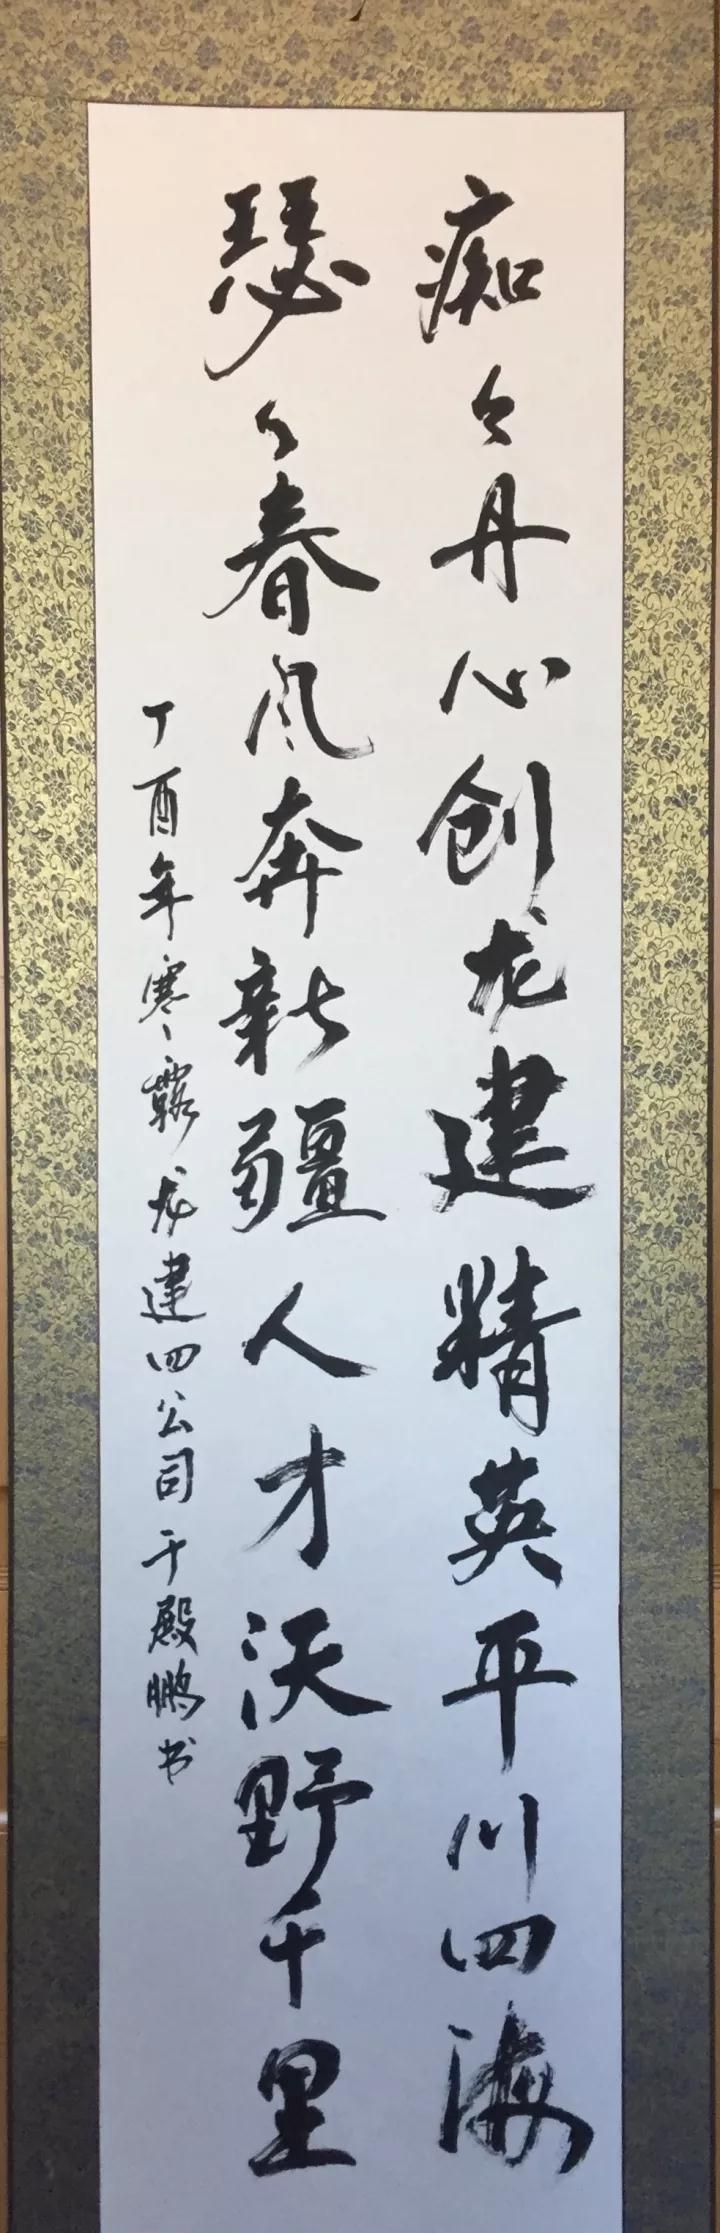 痴々丹心创龙建精英平川四海
瑟々春风奔新疆人才沃野千里
丁酉年寒露龙建四公司于殿鹏书